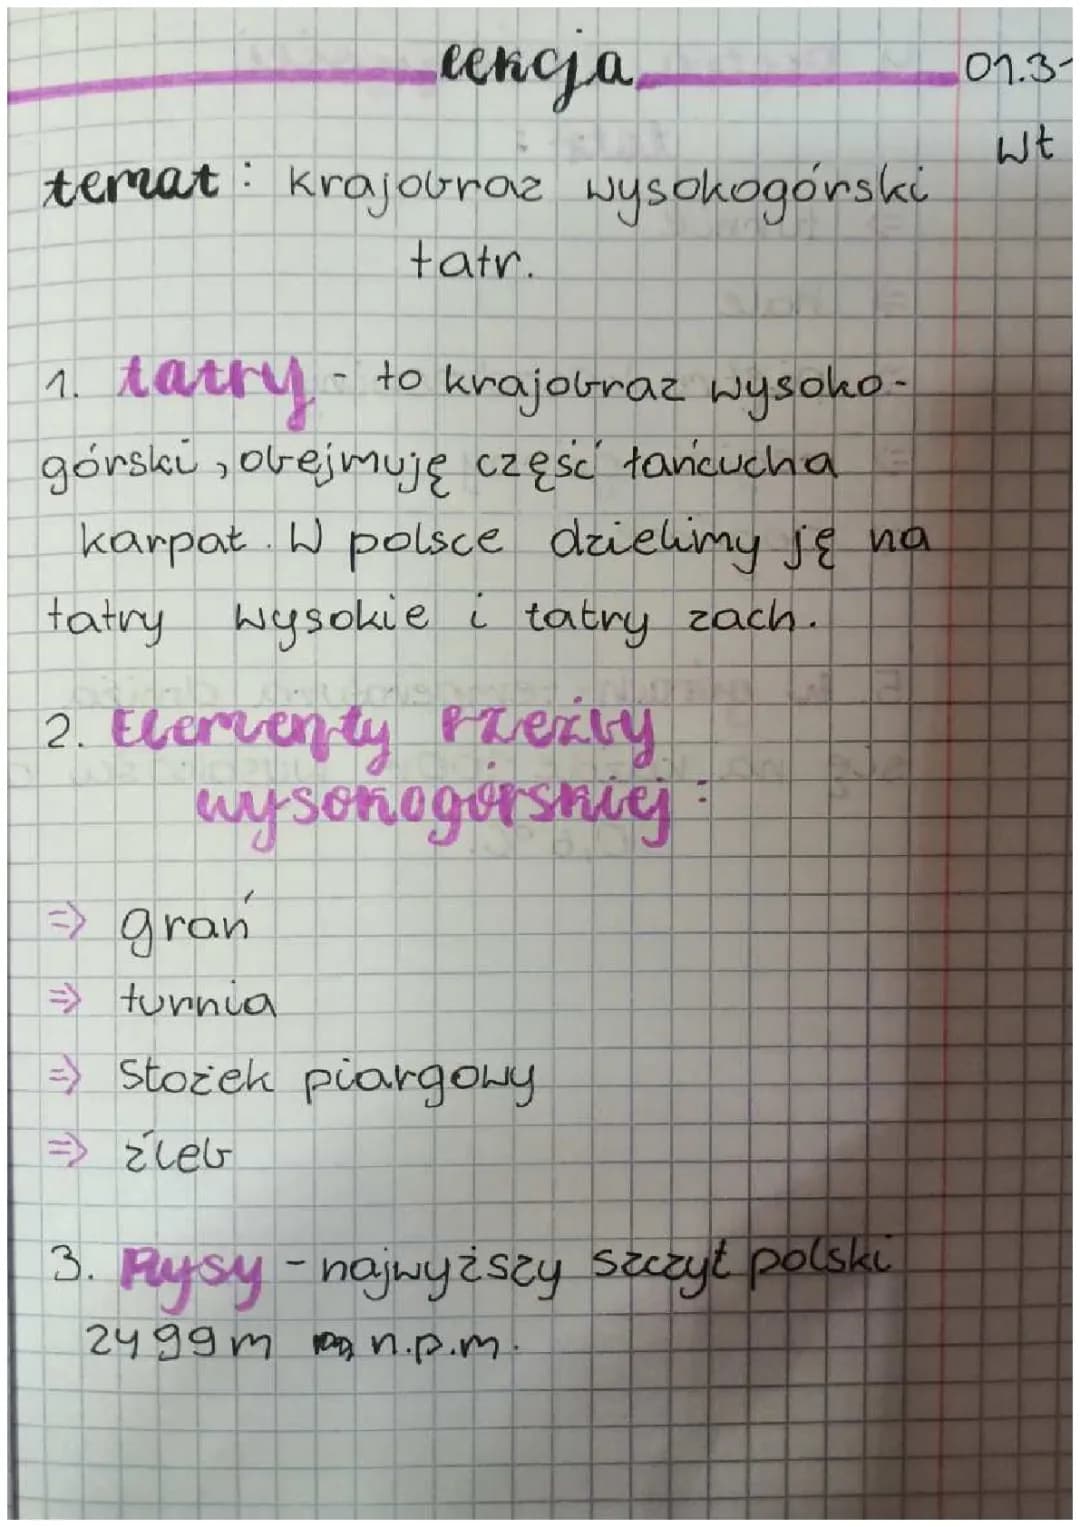 lekcja 01.3-
wt
temat: krajobraz wysokogórski
tatr.
1. tatry - to krajobraz wysoko-
górski, obejmuję część łańcucha
karpat. W polsce dzielimy ję na
tatry wysokie i tatry zach.
2. Elementy rzeźby
wysokogórskiej:
=> grań
=> turnia
=> Stożek piargowy
=> żleb
3. Rysy - najwyższy szczyt polski
2499m n.p.m.